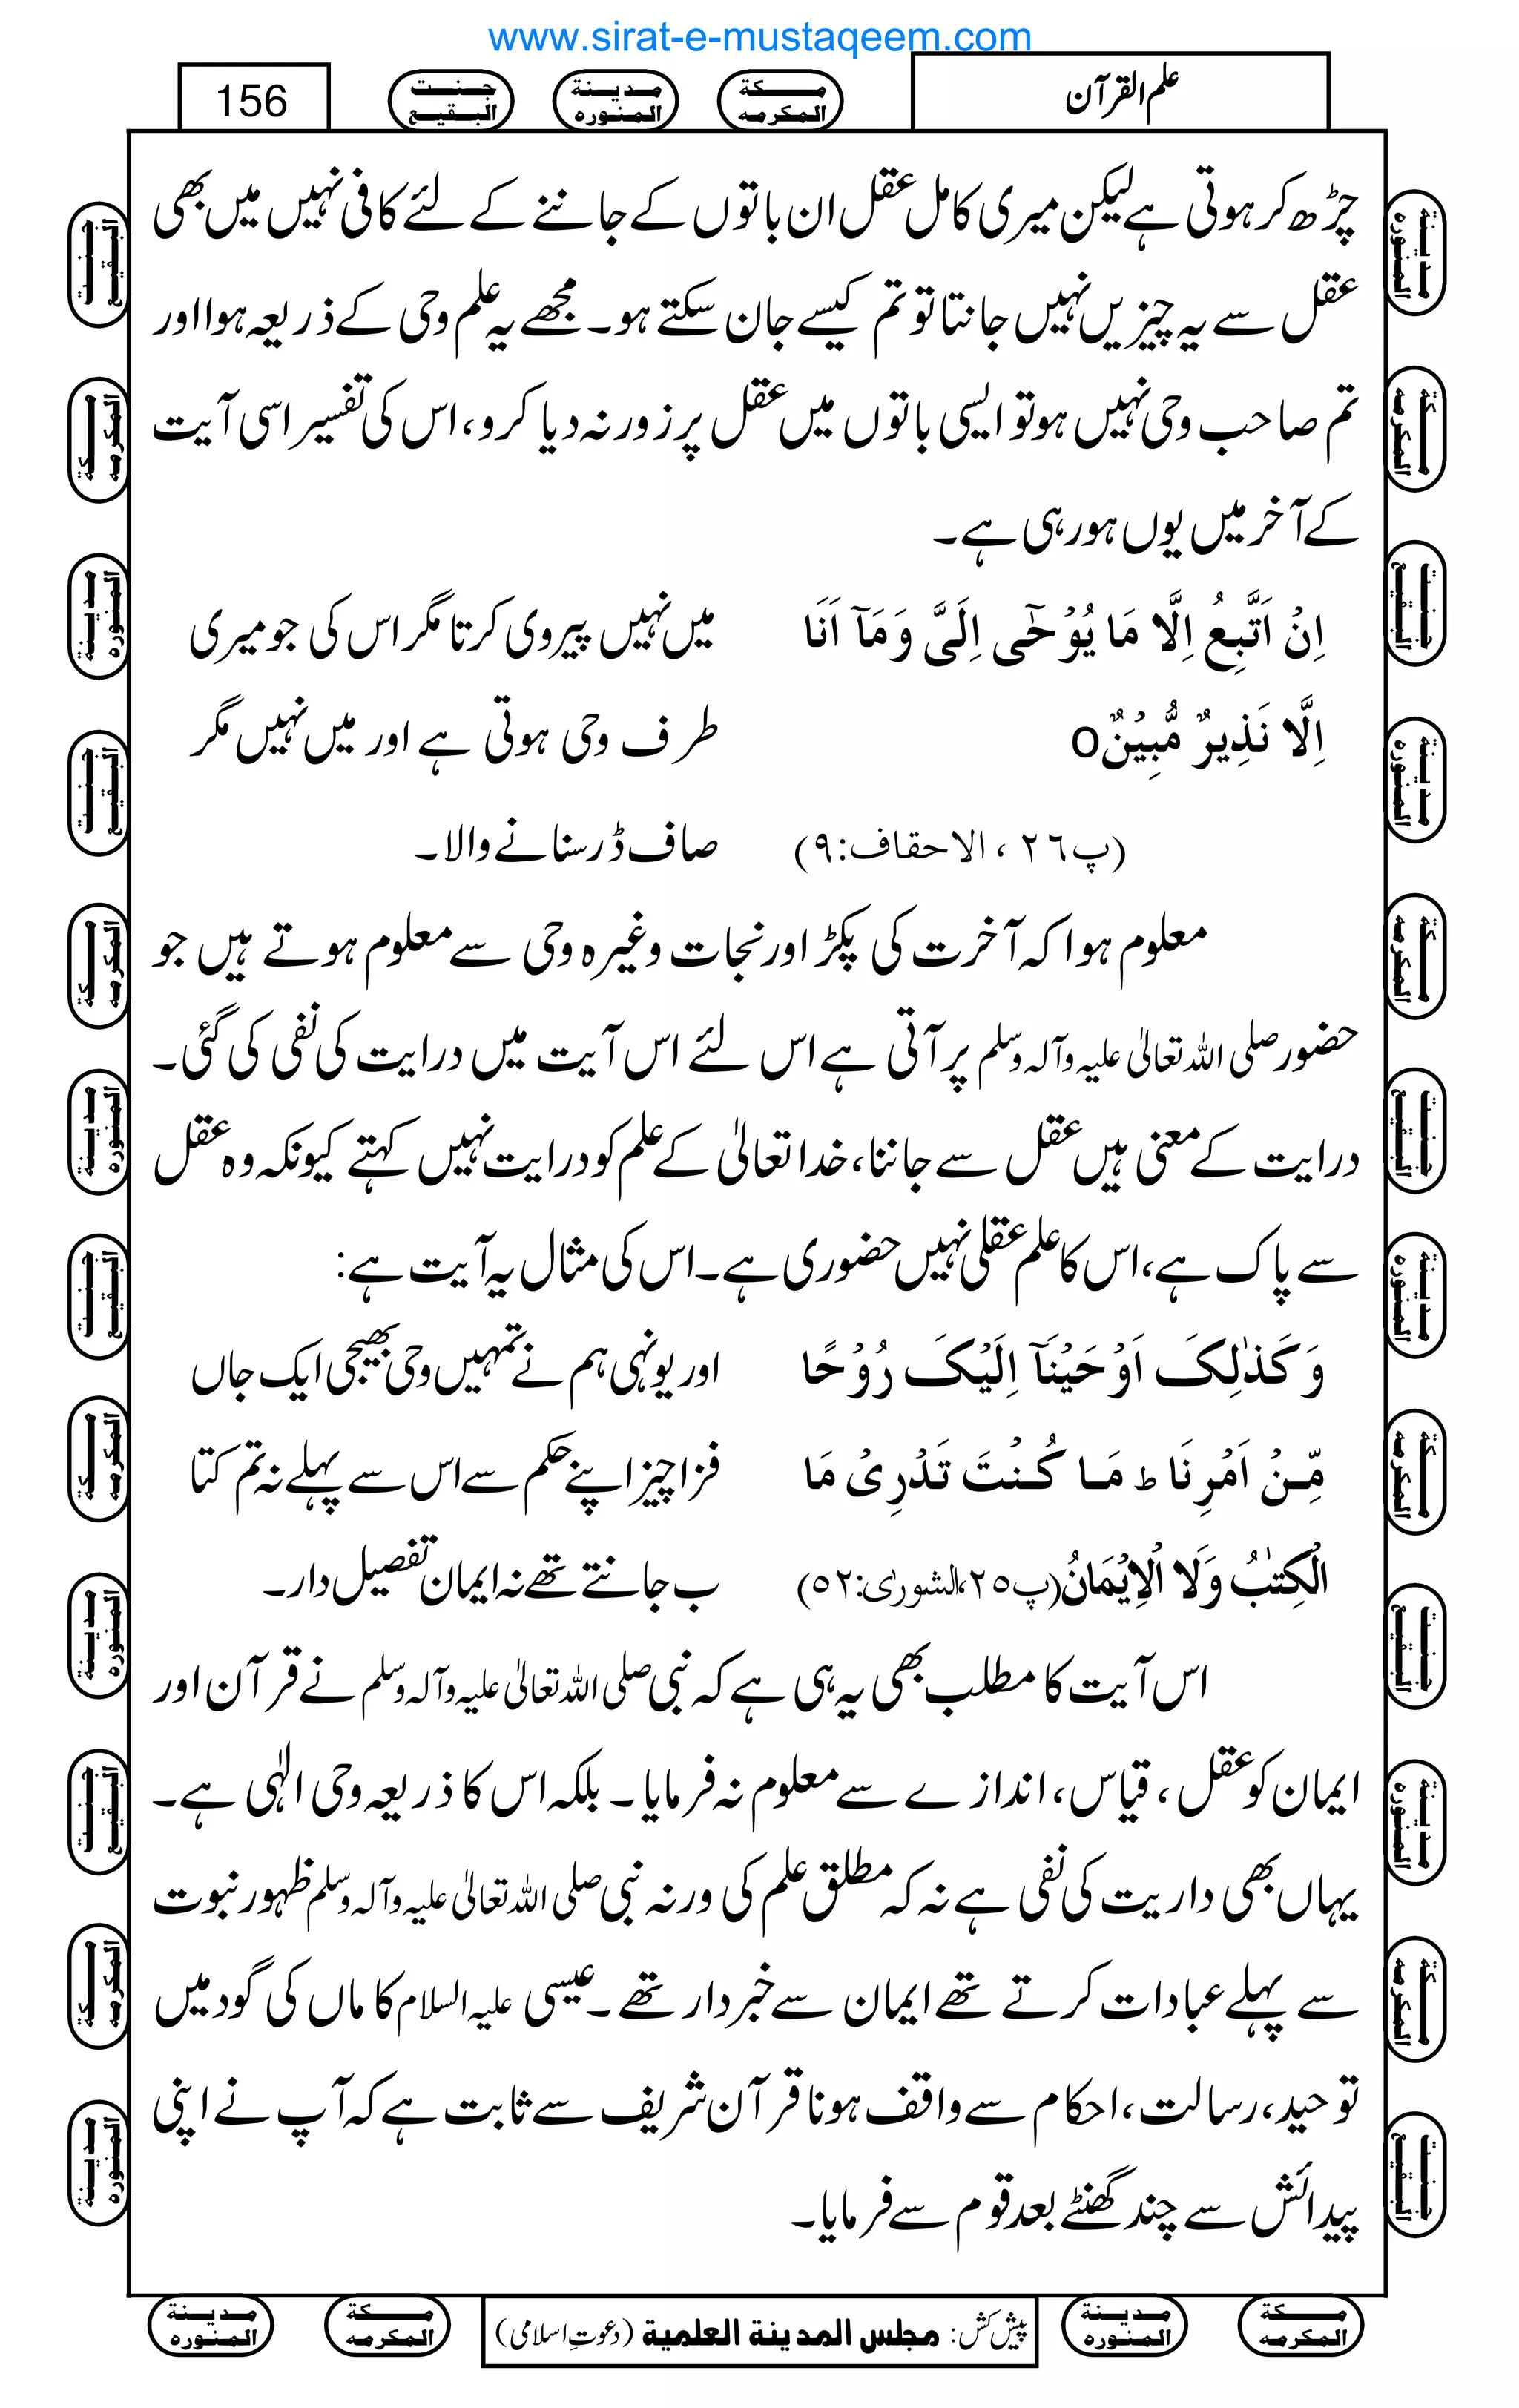 www.sirat-e-mustaqeem.com
علم القرآن
مكة المكرمه
مدينة المنوره
جنت البقيع
156
چڑھ کر ہوتی ہے لیکن میری کامل عقل ان باتوں کے جاننے کے لئے کافی نہیں میں بھی
عقل سے یہ چیزیں نہیں جانتا تو تم کیسے جان سکتے ہو۔ مجھے یہ علم وحی کے ذریعہ ہوا اور
تم صاحب وحی نہیں ہو تو ایسی باتوں میں عقل پر زور نہ دیا کرو، اس کی تفسیر اسی آیت
کے آخر میں یوں ہورہی ہے۔
اِنْ اَتَّبِعُ اِلَّا مَا یُوْحٰۤی اِلَیَّ وَمَاۤ اَنَا
میں نہیں پیروی کرتا مگر اس کی جو میری
اِلَّا نَذِیرٌ مُّبِیْنٌo
طرف وحی ہوتی ہے اور میں نہیں مگر
(پ٢٦ ، الاحقاف:٩)
صاف ڈر سنانے والا۔
معلوم ہوا کہ آخرت کی پکڑ اور نجات وغیرہ وحی سے معلوم ہوتے ہیں جو
حضور صلی اللہ تعالیٰ علیہ وآلہ وسلم پر آتی ہے اس لئے اس آیت میں درایت کی نفی کی گئی۔
درایت کے معنی ہیں عقل سے جاننا، خدا تعالیٰ کے علم کو درایت نہیں کہتے کیونکہ وہ عقل
سے پاک ہے، اس کا علم عقلی نہیں حضوری ہے۔ اس کی مثال یہ آیت ہے:
وَ کَذٰلِکَ اَوْحَیْنَاۤ اِلَیْکَ رُوْحًا
اور یونہی ہم نے تمہیں وحی بھیجی ایک جاں
مِّنْ اَمْرِنَا ط مَا کُنْتَ تَدْرِیْ مَا
فزا چیز اپنے حکم سے اس سے پہلے نہ تم کتا
الْکِتٰبُ وَلَا الْاِیْمَانُ(پ٢٥،الشورٰی:٥٢)
ب جانتے تھے نہ ایمان تفصیل دار۔
اس آیت کا مطلب بھی یہ ہی ہے کہ نبی صلی اللہ تعالیٰ علیہ وآلہ وسلم نے قرآن اور
ایمان کو عقل ، قیاس، اندازے سے معلوم نہ فرمایا۔ بلکہ اس کا ذریعہ وحی الٰہی ہے۔
یہاں بھی داریت کی نفی ہے نہ کہ مطلق علم کی ورنہ نبی صلی اللہ تعالیٰ علیہ وآلہ وسلم ظہور نبوت
سے پہلے عبادات کرتے تھے ایمان سے خبردار تھے۔ عیسیٰ علیہ السلام کا ماں کی گود میں
توحید، رسالت، احکام سے واقف ہونا قرآن شریف سے ثابت ہے کہ آپ نے اپنی
پیدائش سے چند گھنٹے بعد قوم سے فرمایا۔
پیش کش: مجلس المدينة العلمية (دعوتِ اسلامی)